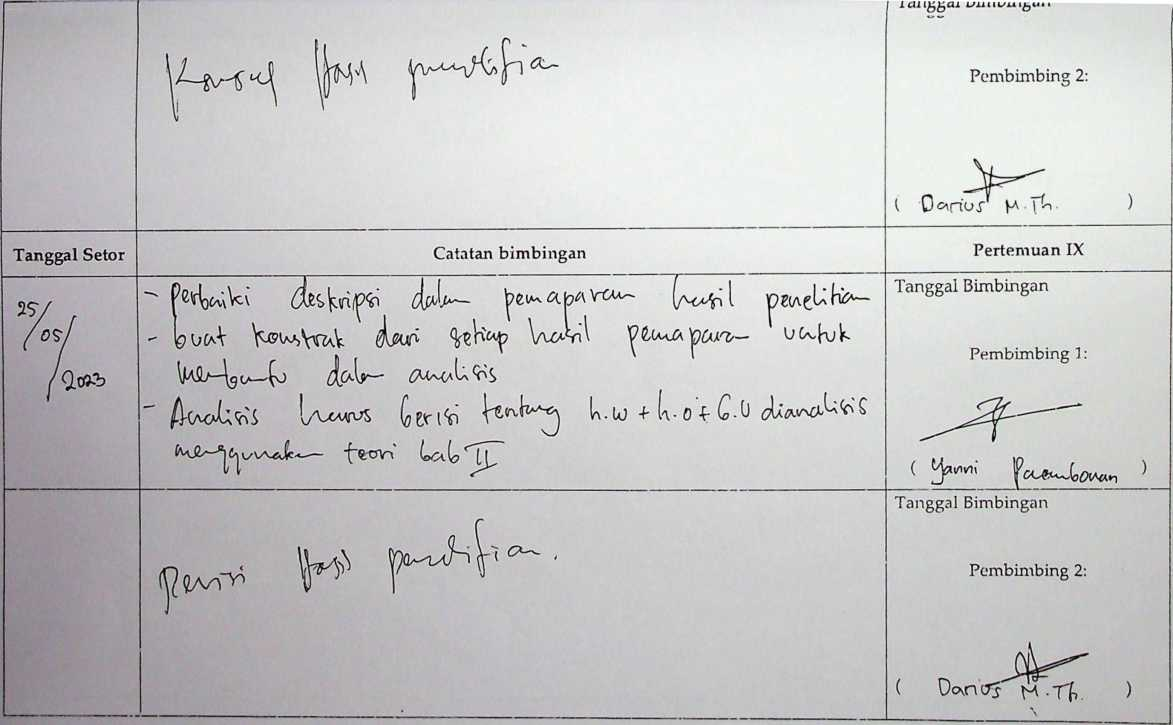 Tanggal Bimbingan
Konsul Hasil penelitian
Pembimbing 2:
( Darius M.Th. )
Tanggal Setor
Catatan bimbingan
Pertemuan IX
25/05/2023
- Perbaiki deskripsi dalam pemaparan hasil penelitian
- buat konstrak dari setiap hasil pemaparan untuk
membantu dalam analisis
- Analisis harus berisi tentang h.w + h.o + G.U dianalisis
menggunakan teori bab II
Tanggal Bimbingan
Pembimbing 1:
( Yanni Paembonan )
Revisi Hasil penelitian.
Tanggal Bimbingan
Pembimbing 2:
( Darius M.Th. )